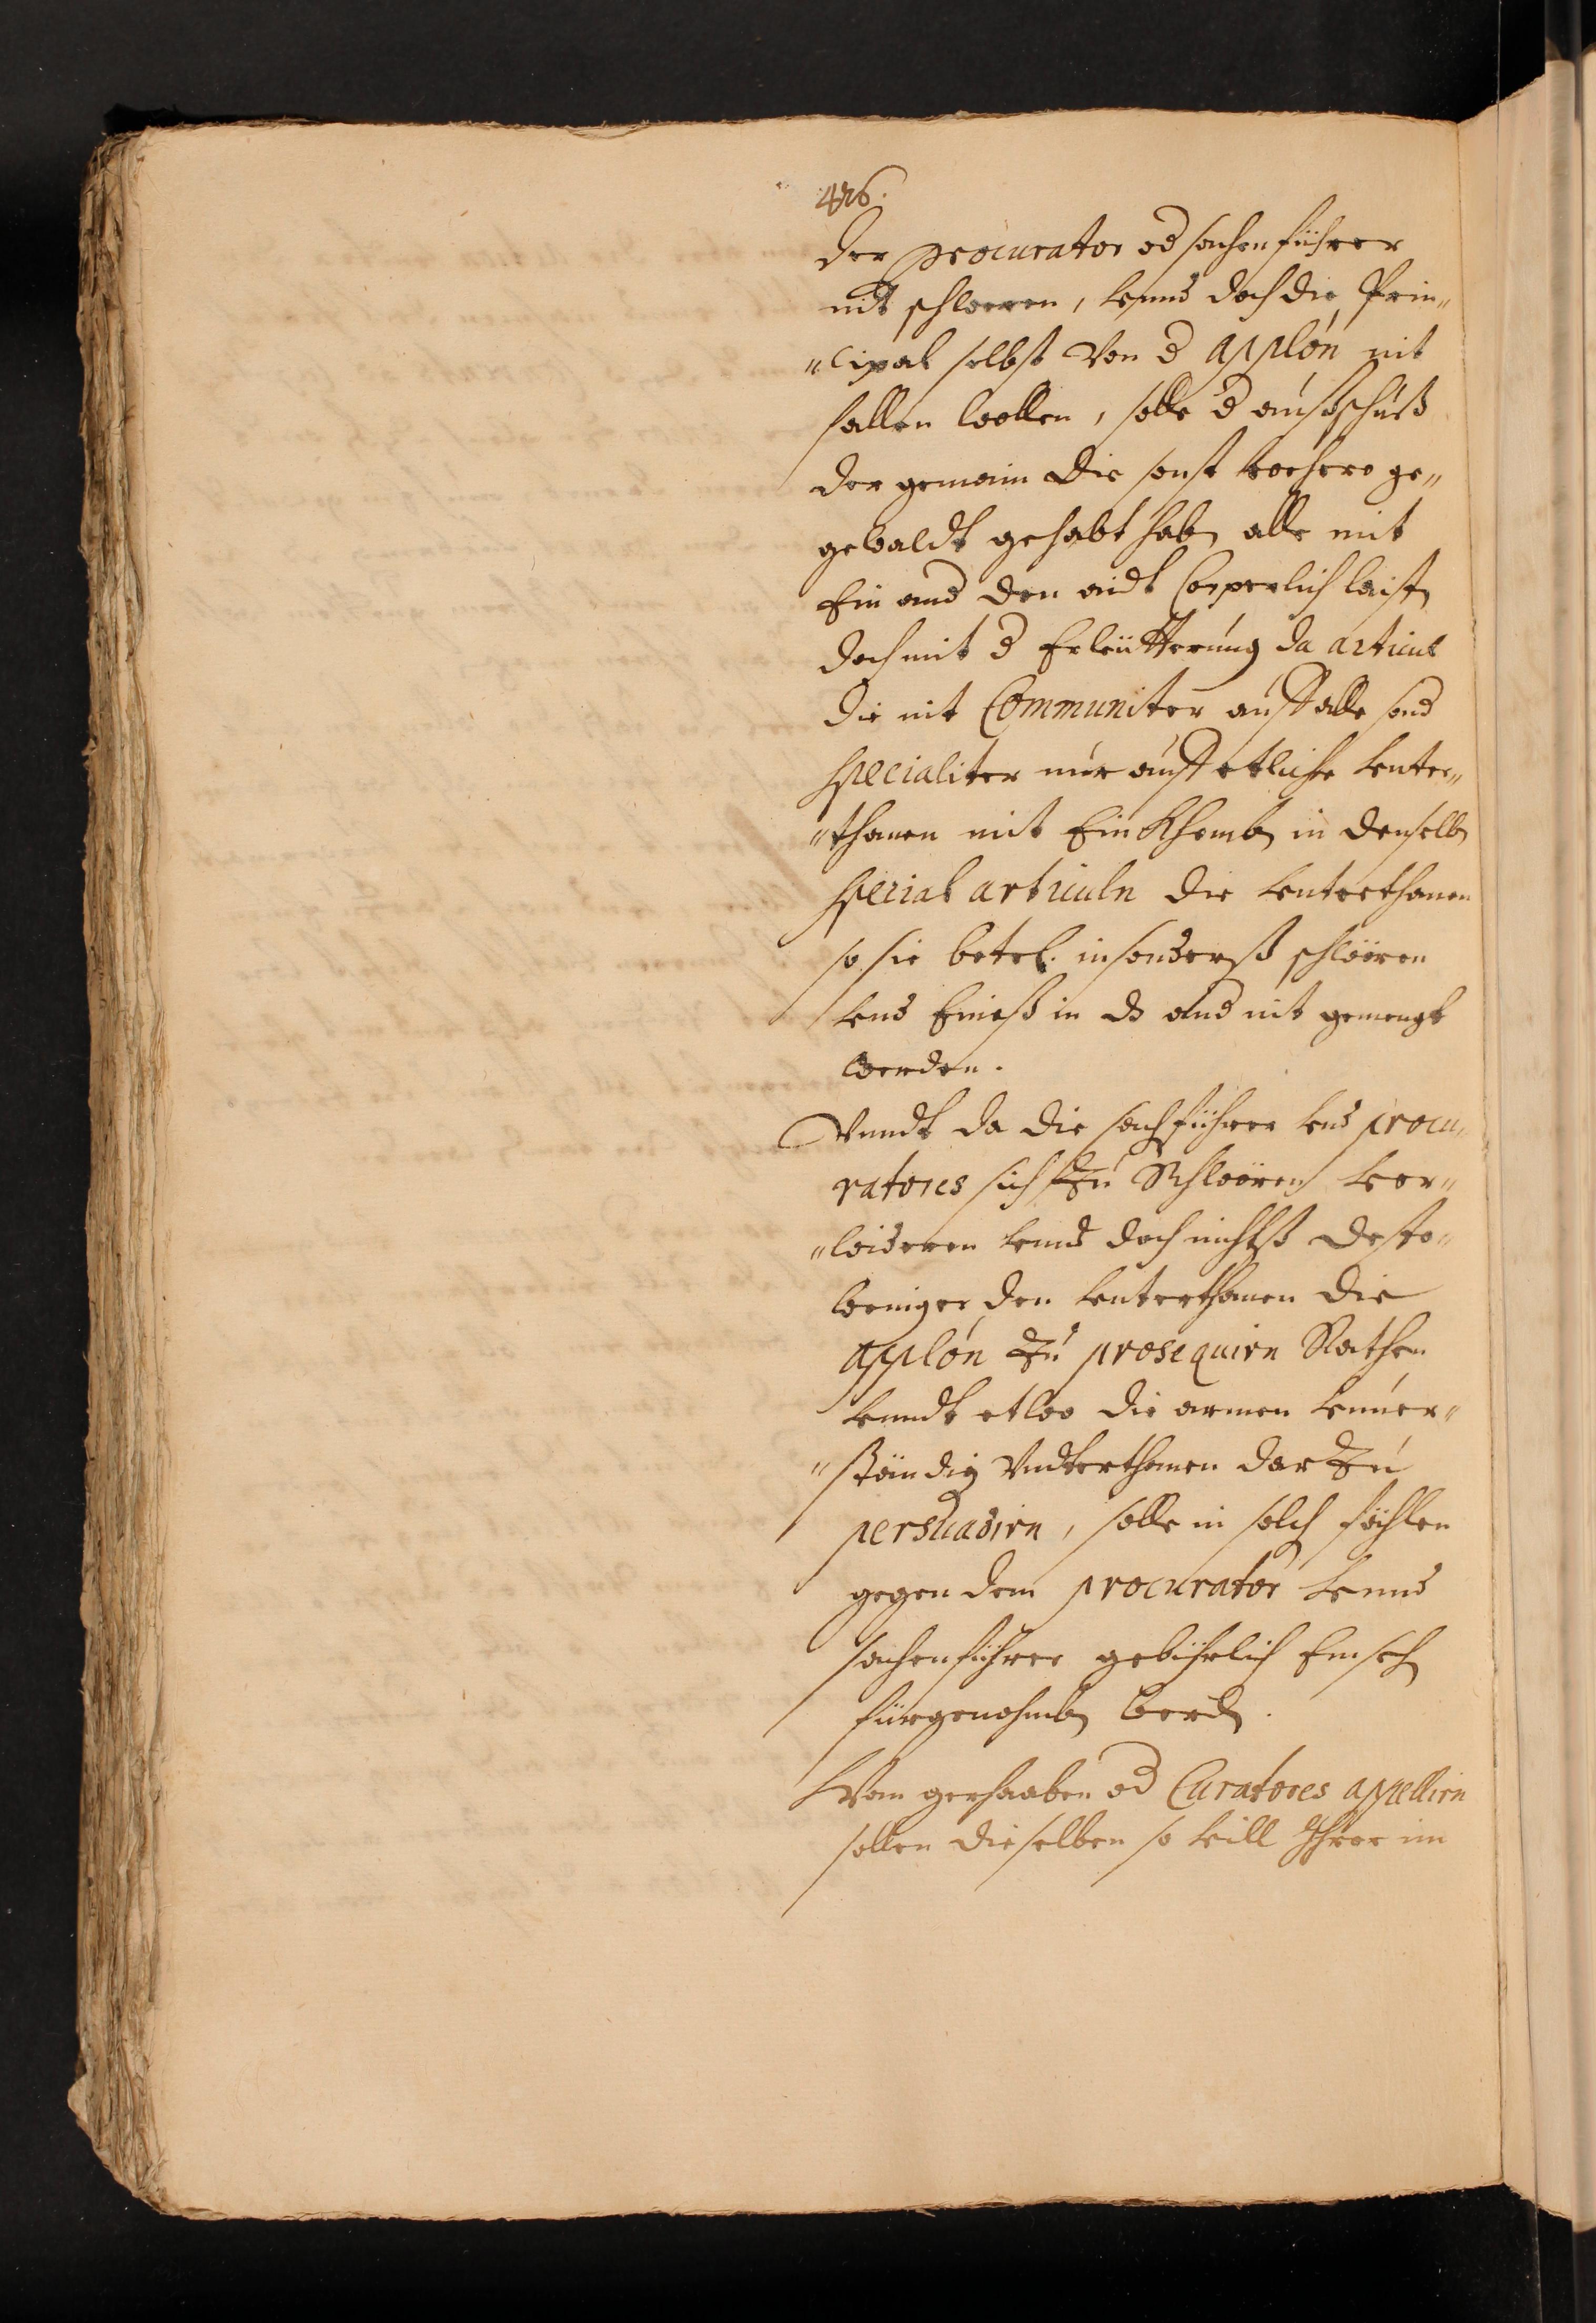 426.
der procurator od sachenführer
nit schweren, vnnd doch die Prin„
„cipal selbst von d applón nit
fallen wollen, solle d ausschuß
der gemain die sonst vorhero ge„
gewaldt gehabt habn alle mit
Ein and den aidt Corperlich laistn
doch mit d Erleütterung da articul
die nit Communiter auff alle sond
specialiter nur auff etliche vnter„
„thanen mit Ein khombn in denselbn
special articuln die vnterthanen
so sie betrf. insonderß schwören
vnd Eineß in ds and nit gemengt
werden.
Vnndt da die sachführer vnd procu„
ratores sich zu Schwören ver„
„wideren vnnd doch nichtß desto„
weniger den vnterthanen die
applón zu prosequirn Rathen
vnndt etwo die armen vnuer„
„ständig Vndterthanen darzu
persuadirn, solle in solch fählen
gegen dem procurator vnnd
sachenführer gebührlich Einsehn
fürgenohmbn werdn.
Wan gerhaaben od Curatores apellirn
sollen dieselben so vill Ihrer im